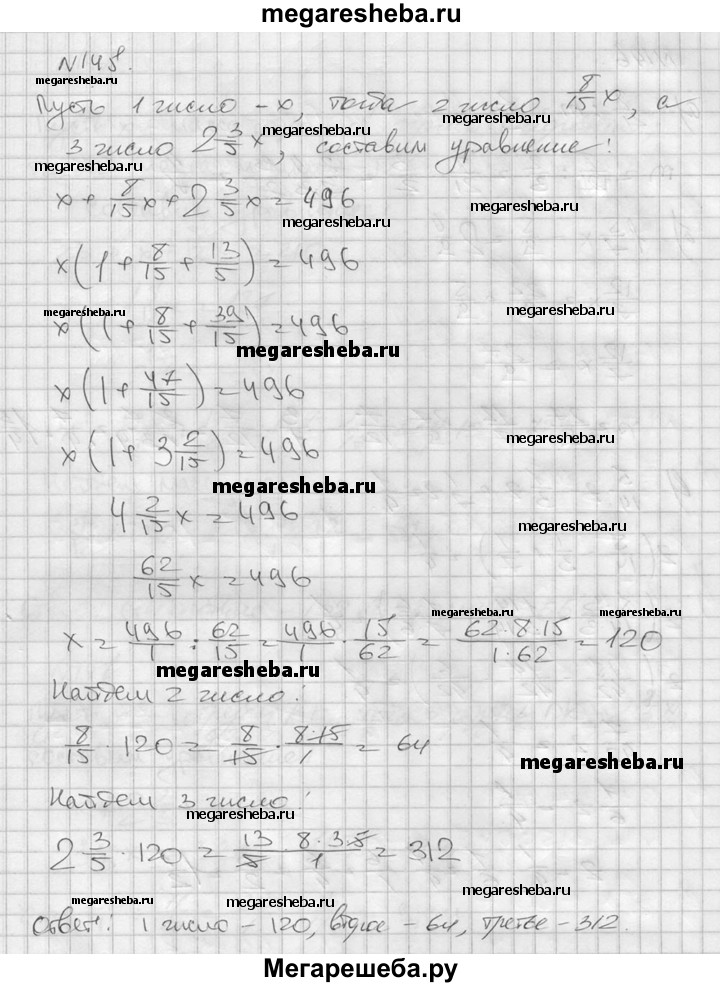 megaresheba.ru
N148.
megaresheba.ru
Пусть 1 число - x, тогда 2 число 8/15 x, а
megaresheba.ru megaresheba.ru
3 число 2 3/5 x, составим уравнение:
megaresheba.ru
x + 8/15 x + 2 3/5 x = 496
megaresheba.ru megaresheba.ru
x(1 + 8/15 + 13/5) = 496
megaresheba.ru megaresheba.ru
x(1 + 8/15 + 39/15) = 496
megaresheba.ru
x(1 + 47/15) = 496
megaresheba.ru
x(1 + 3 2/15) = 496
megaresheba.ru
4 2/15 x = 496
megaresheba.ru
62/15 x = 496
megaresheba.ru megaresheba.ru
x = 496/1 : 62/15 = 496/1 · 15/62 = 62·8·15/1·62 = 120
megaresheba.ru
Найдем 2 число:
8/15 · 120 = 8/15 · 8·15/1 = 64
megaresheba.ru
Найдем 3 число:
megaresheba.ru
2 3/5 · 120 = 13/5 · 8·3·5/1 = 312
megaresheba.ru
Ответ: 1 число - 120, второе - 64, третье - 312.
megaresheba.ru megaresheba.ru
Мегарешеба.ру